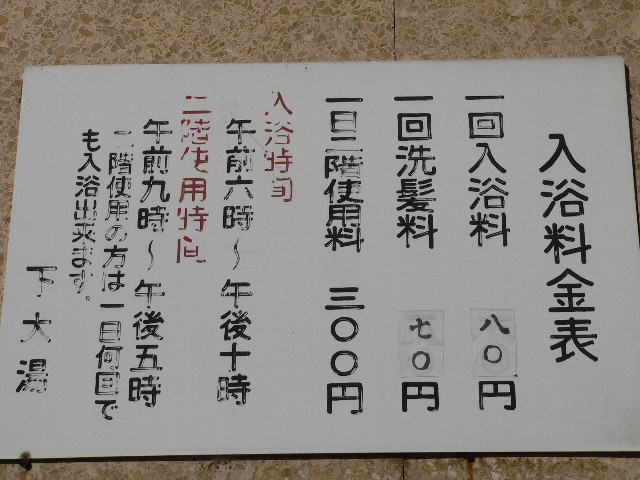 入浴料金表
一回入浴料 八〇円
一回洗髪料 七〇円
一日二階使用料 三〇〇円
入浴時间
午前六時～午後十時
二階使用時间
午前九時～午後五時
二階使用の方は一日何回で
も入浴出来ます。
下大湯